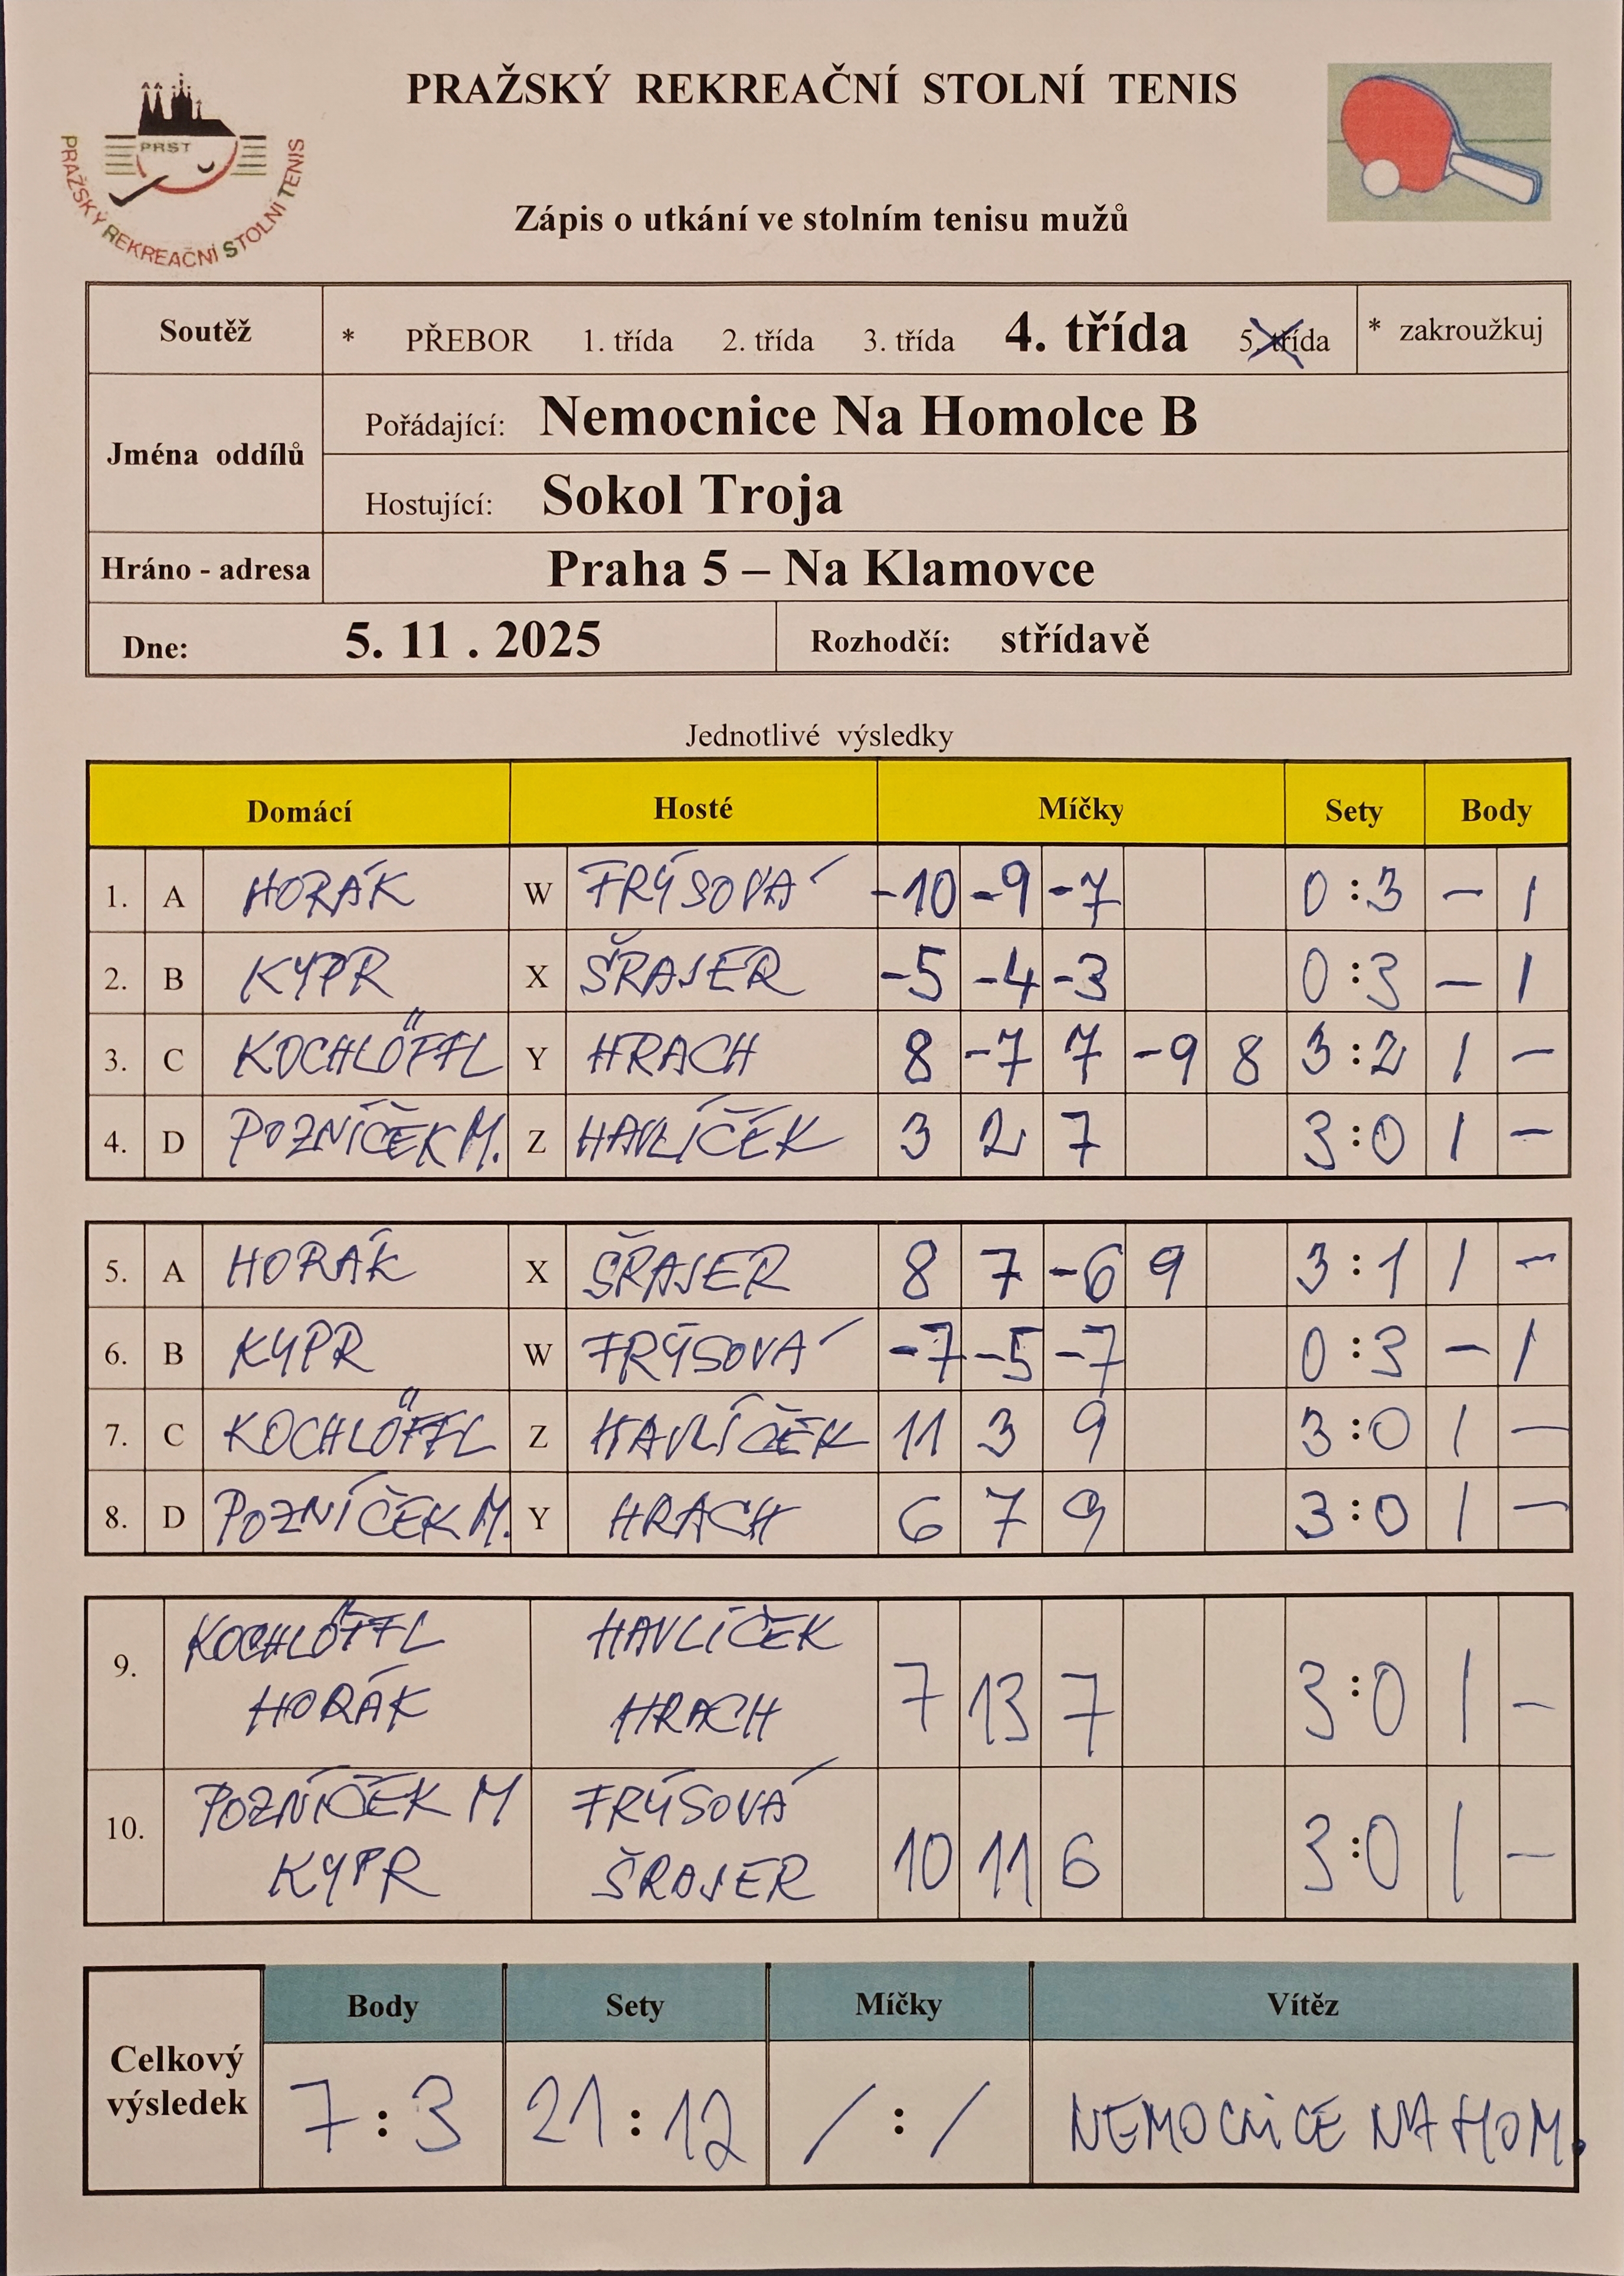 PRAŽSKÝ REKREAČNÍ STOLNÍ TENIS
PRST
PRAŽSKÝ REKREAČNÍ STOLNÍ TENIS
Zápis o utkání ve stolním tenisu mužů
Soutěž * PŘEBOR 1. třída 2. třída 3. třída 4. třída 5. třída * zakroužkuj
Jména oddílů
Pořádající: Nemocnice Na Homolce B
Hostující: Sokol Troja
Hráno - adresa Praha 5 – Na Klamovce
Dne: 5. 11 . 2025 Rozhodčí: střídavě
Jednotlivé výsledky
Domácí Hosté Míčky Sety Body
1. A HORÁK W FRÝSOVÁ -10 -9 -7 0 : 3 - 1
2. B KYPR X ŠRAJER -5 -4 -3 0 : 3 - 1
3. C KOCHLÖFFL Y HRACH 8 -7 7 -9 8 3 : 2 1 -
4. D POZNÍČEK M. Z HAVLÍČEK 3 2 7 3 : 0 1 -
5. A HORÁK X ŠRAJER 8 7 -6 9 3 : 1 1 -
6. B KYPR W FRÝSOVÁ -7 -5 -7 0 : 3 - 1
7. C KOCHLÖFFL Z HAVLÍČEK 11 3 9 3 : 0 1 -
8. D POZNÍČEK M. Y HRACH 6 7 9 3 : 0 1 -
KOCHLÖFFL HAVLÍČEK
9. HORÁK HRACH 7 13 7 3 : 0 1 -
POZNÍČEK M FRÝSOVÁ
10. KYPR ŠRAJER 10 11 6 3 : 0 1 -
Body Sety Míčky Vítěz
Celkový výsledek 7 : 3 21 : 12 / : / NEMOCNICE NA HOM.